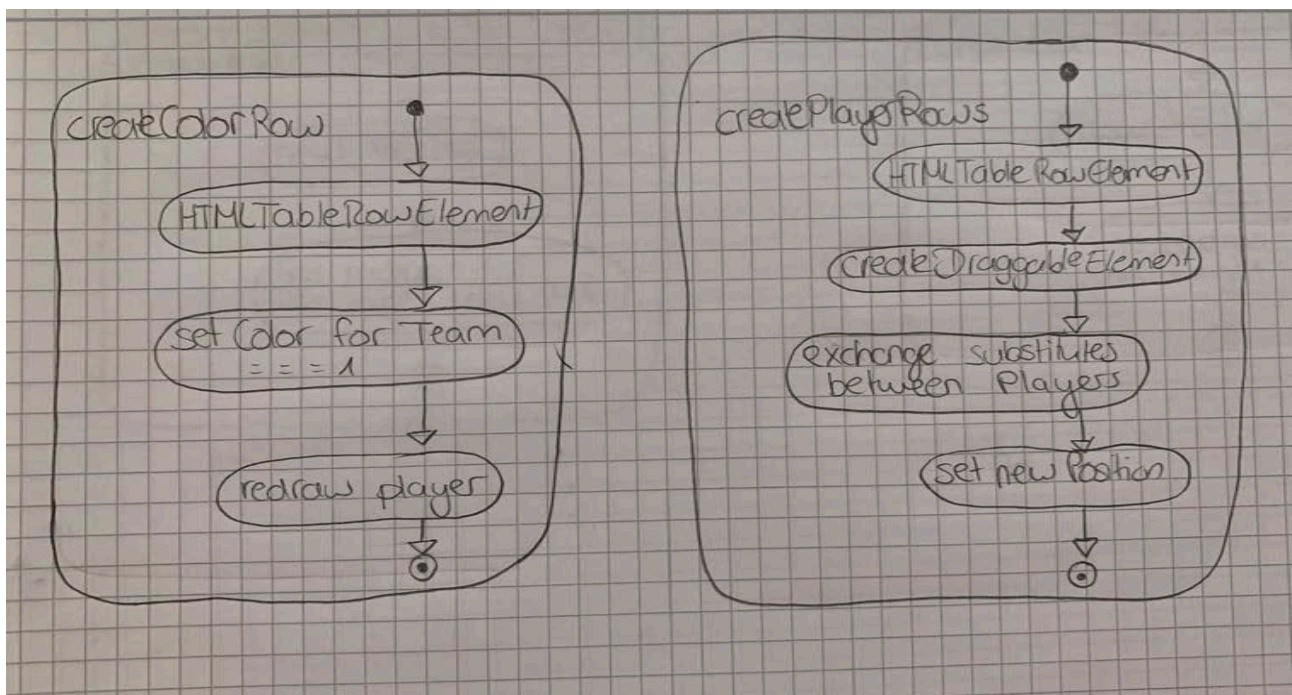 createColorRow
HTMLTableRowElement
set Color for Team
= = = 1
redraw player
createPlayerRows
HTMLTableRowElement
createDraggableElement
exchange substitutes
between Players
set new Position